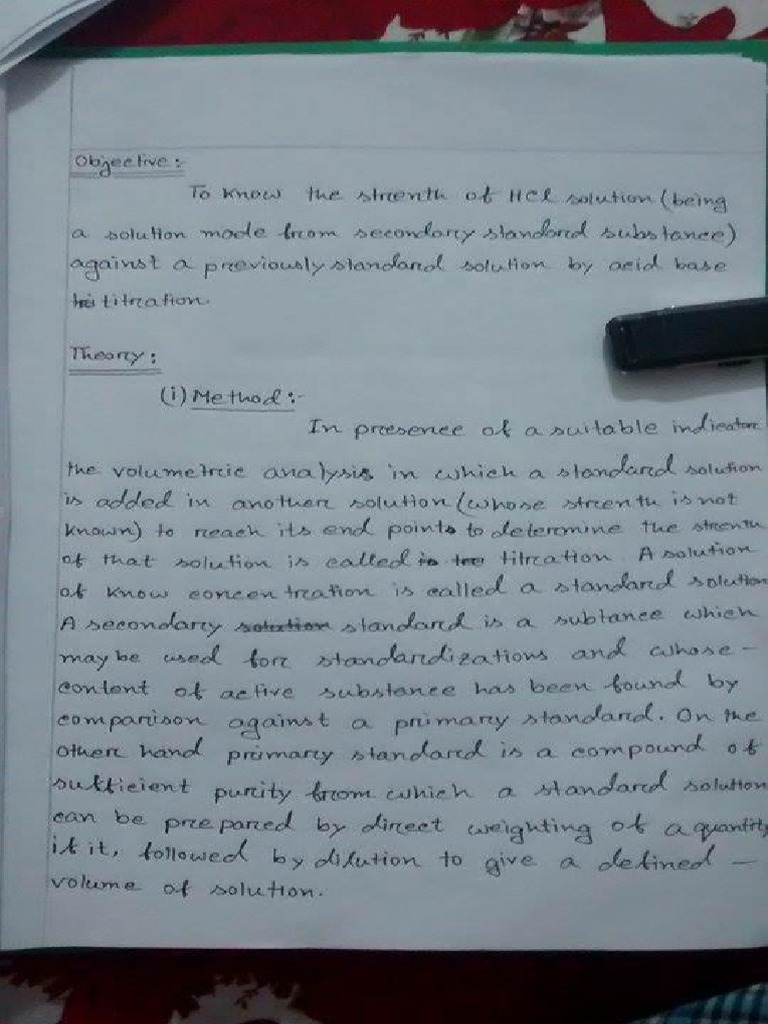 Objective:-
To know the strenth of HCl solution (being
a solution made from secondary standard substance)
against a previously standard solution by acid base
titration.
Theory:
(i) Method:-
In presence of a suitable indicator
the volumetric analysis in which a standard solution
is added in another solution (whose strenth is not
known) to reach its end points to determine the strenth
of that solution is called titration. A solution
of know concentration is called a standard solution
A secondary standard is a subtance which
may be used for standardizations and whose -
content of active substance has been found by
comparison against a primary standard. On the
other hand primary standard is a compound of
sufficient purity from which a standard solution
can be prepared by direct weighting of a quantity
if it, followed by dilution to give a defined -
volume of solution.